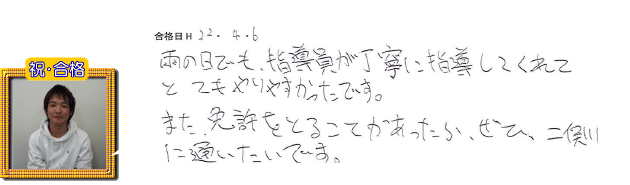 合格日H 22.4.6
祝・合格
雨の日でも、指導員が丁寧に指導してくれて
とてもやりやすかったです。
また、免許をとることがあったら、ぜひ、二俣川
に通いたいです。